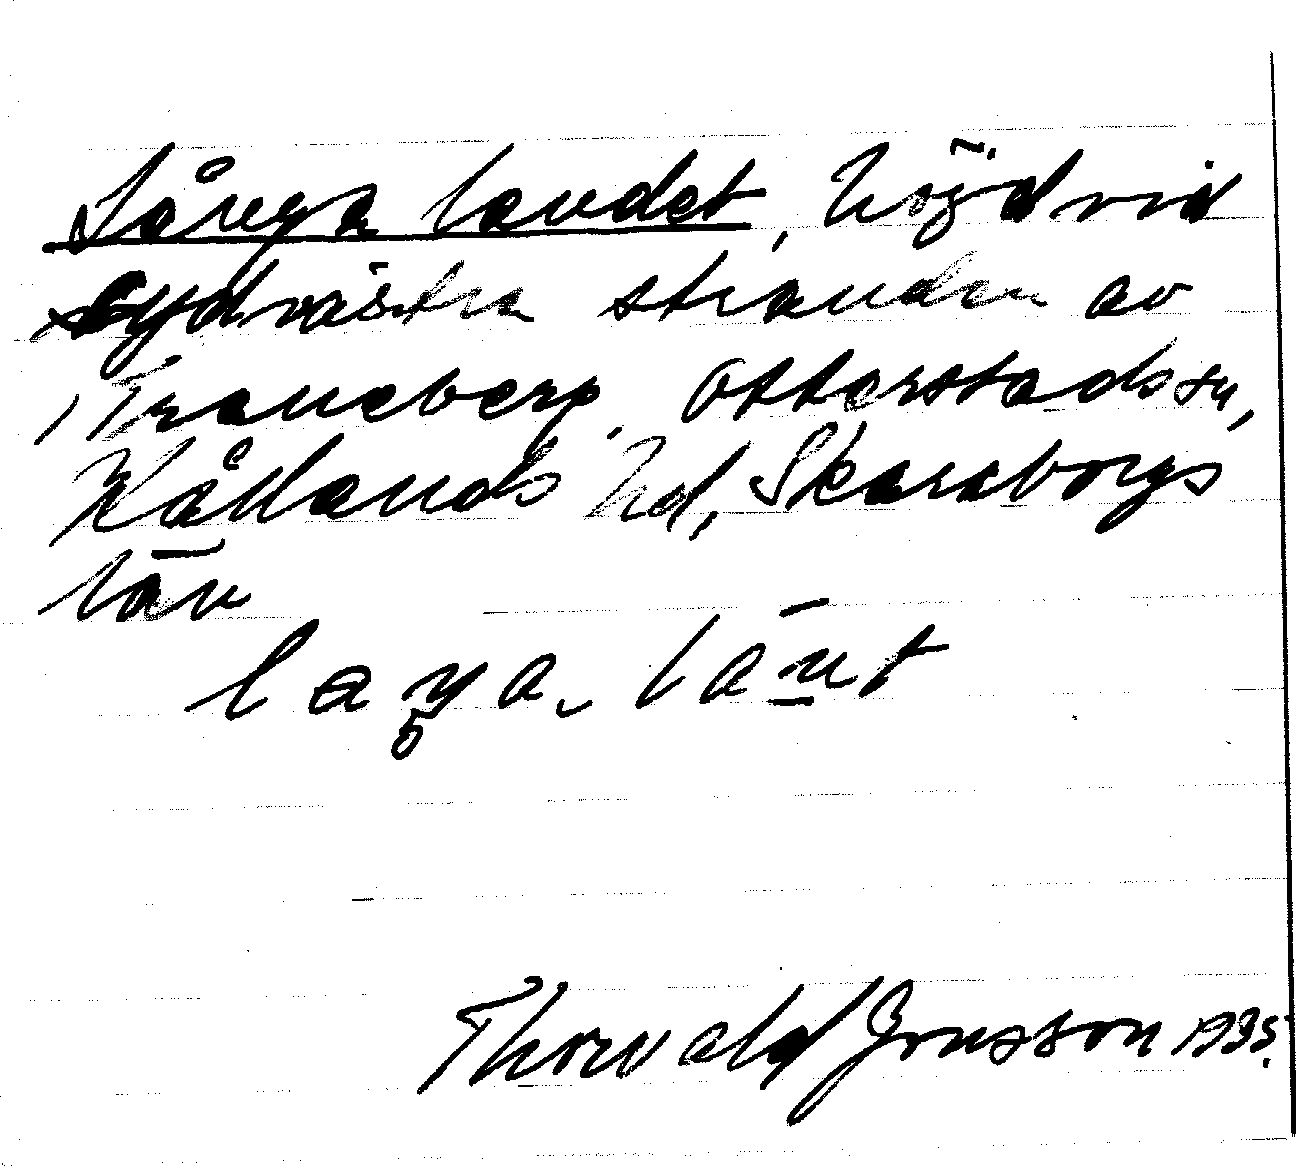 Långa landet, höjd vid
sydvästra stranden av
Traneberg. Otterstads sn,
Kållands hd, Skaraborgs
län
Thorvald Jonsson 1935.